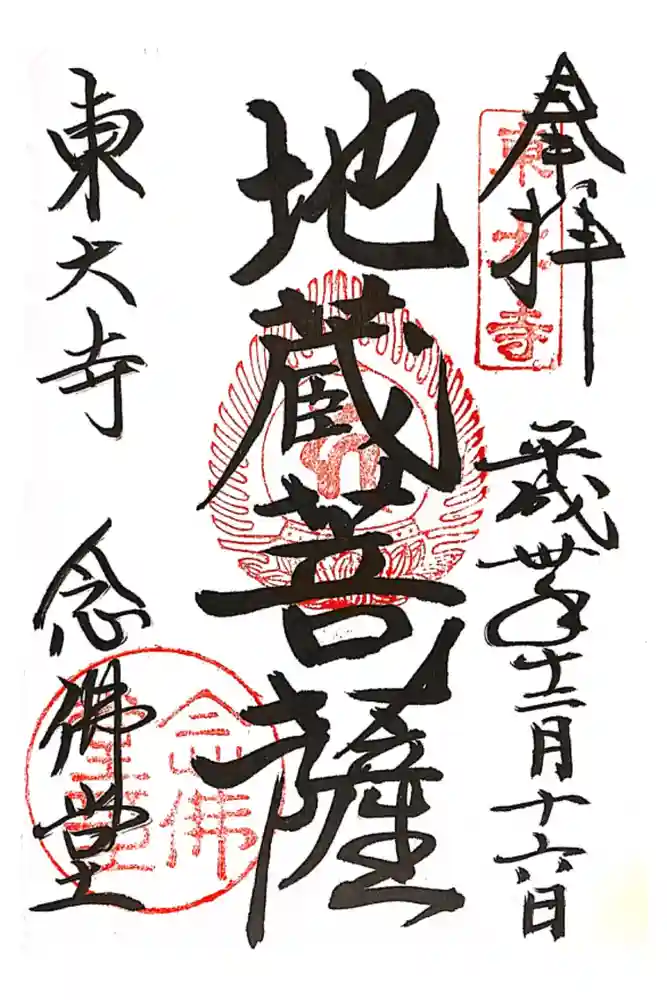 奉拝
東大寺
平成卅年十二月十六日
地蔵菩薩
東大寺 念佛堂
念佛